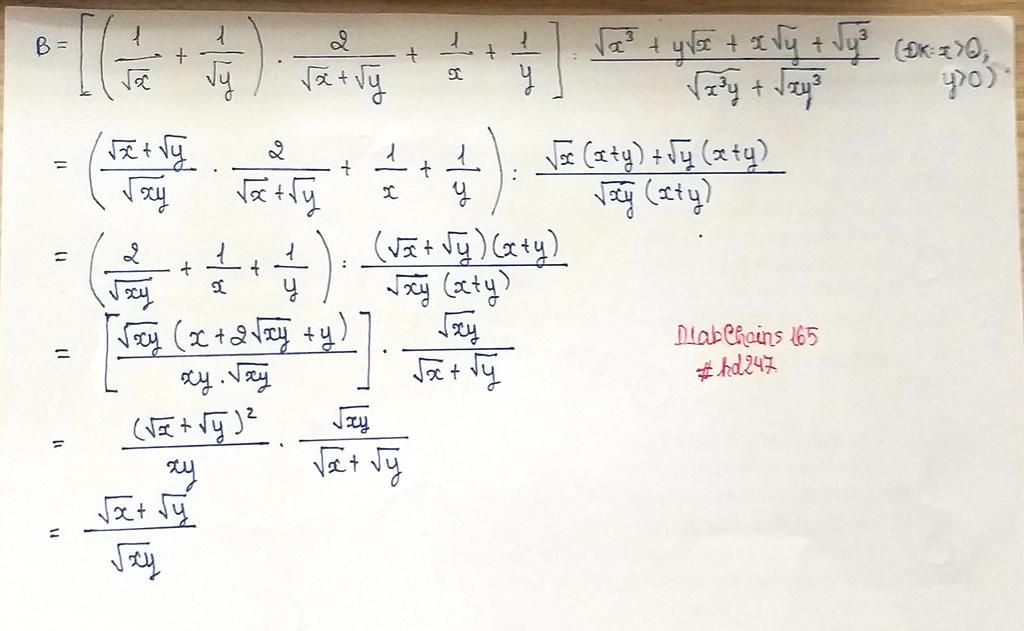 B = [ ( 1/√x + 1/√y ) . 2/(√x + √y) + 1/x + 1/y ] : (√x³ + y√x + x√y + √y³)/(√x³y + √xy³) (ĐK: x>0; y>0)
= ( (√x + √y)/√xy . 2/(√x + √y) + 1/x + 1/y ) : (√x (x+y) + √y (x+y))/(√xy (x+y))
= ( 2/√xy + 1/x + 1/y ) : ((√x + √y)(x+y))/(√xy (x+y))
= [ (√xy (x + 2√xy + y))/(xy.√xy) ] . √xy/(√x + √y)
DiabChains 165
#hd247
= (√x + √y)²/xy . √xy/(√x + √y)
= (√x + √y)/√xy